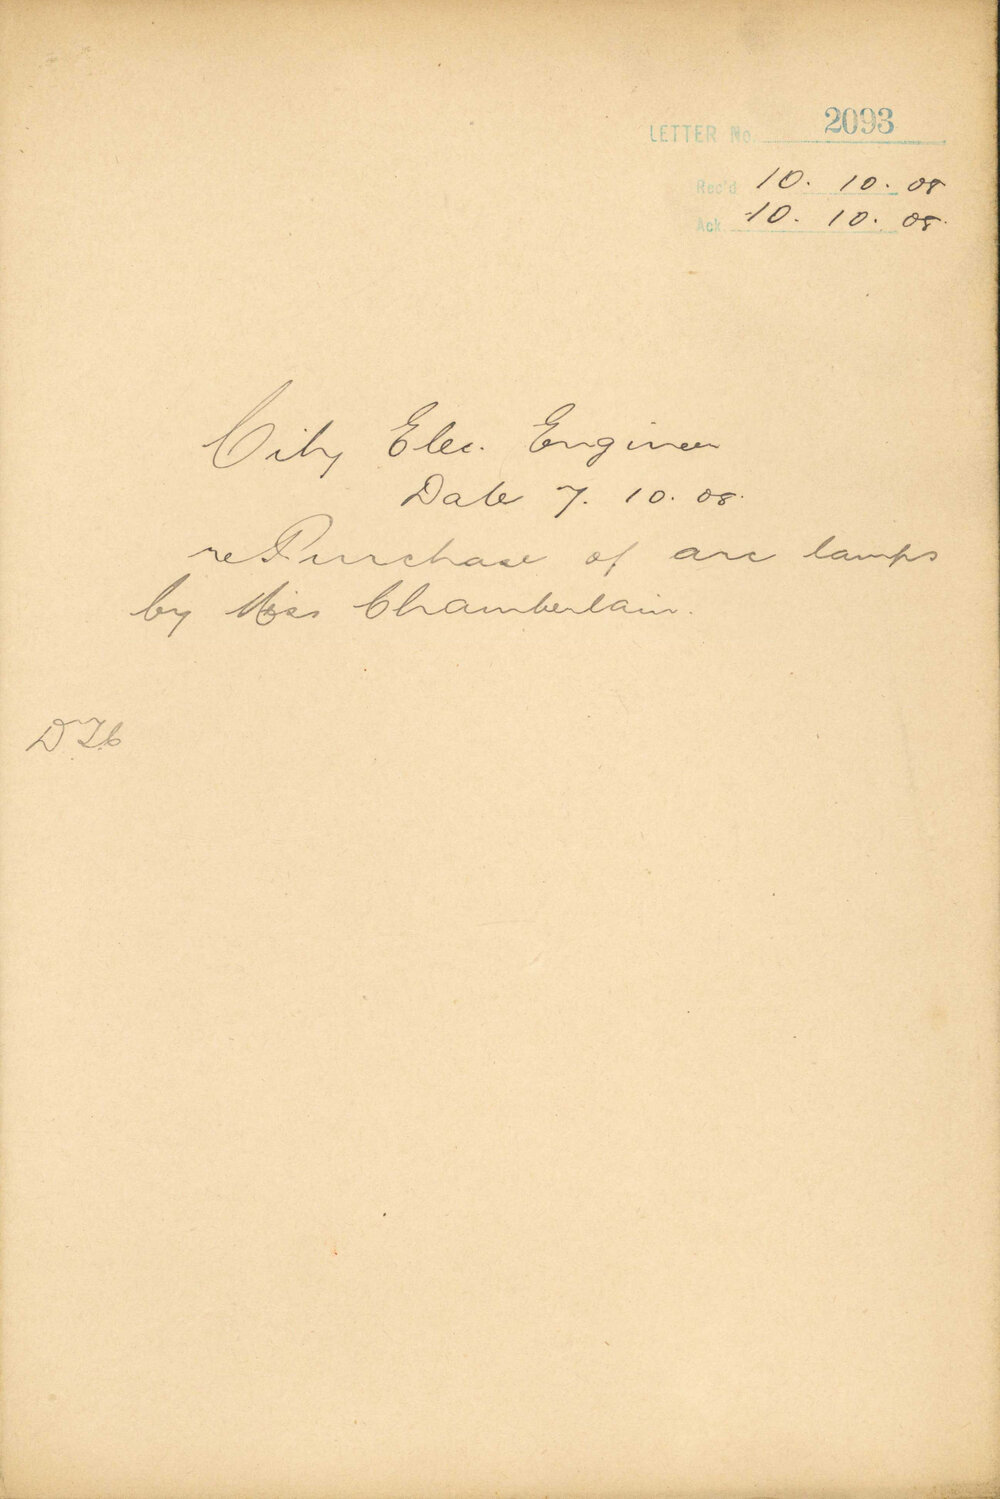 LETTER No. 2093
Rec'd 10. 10. 08
Ack. 10. 10. 08.
City Elec. Engineer
Date 7. 10. 08.
re Purchase of arc lamps
by Miss Chamberlain.